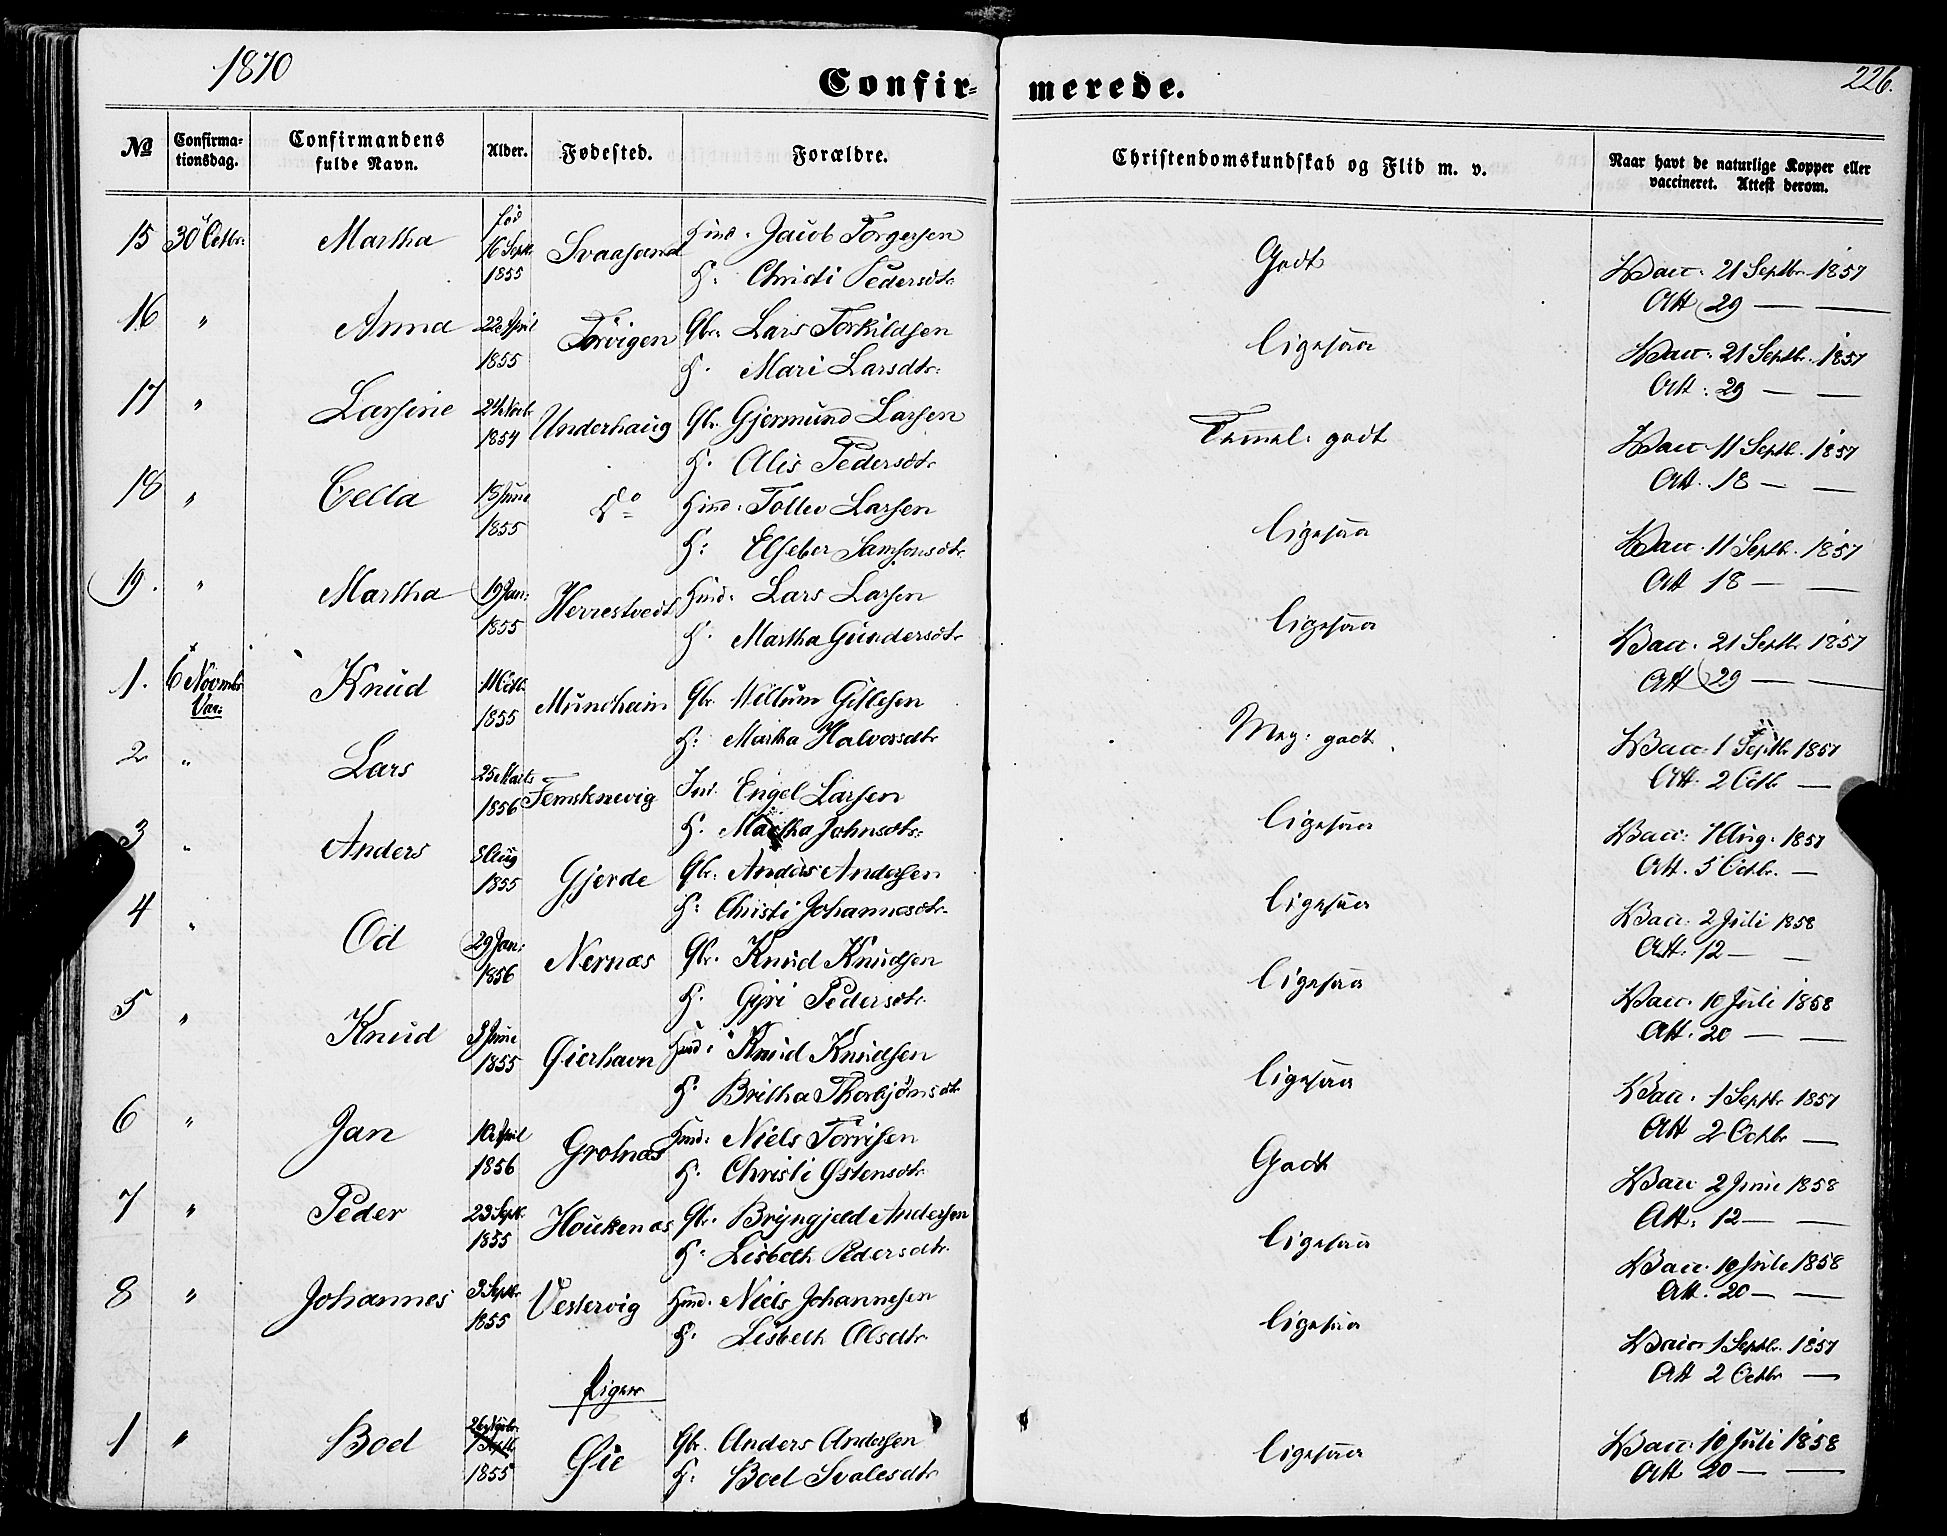 1870
Confirmerede.
226.
№ Confirmationsdag. Confirmandens fulde Navn. Alder. Fødested. Forældre. Christendomskundskab og Flid m. v. Naar havt de naturlige Kopper eller vaccineret. Attest derom.
15 30 Octbr: Martha fød 16 Septr 1855 Svaasand Huusm: Jacob Torgersen Godt Vacc: 21 Septbr 1857
H: Christi Pedersdtr Att 29 — —
16 " Anna 22 April 1855 Torvigen Gbr: Lars Torkildsen ligesaa Vacc: 21 Septb. 1857
H. Mari Larsdtr: Att: 29 — —
17 " Larsine 1854 Underhaug Gbr. Gjermund Larsen Temmel: godt Vacc. 11 Septb. 1857
H. Alis Pedersdtr Att. 18 — —
18 " Cella 15 Juni 1855 Do Huusm: Tollev Larsen ligesaa Vacc. 11 Septbr. 1857
H: Elseber Samsonsdtr Att 18 — —
19. " Martha 19 Jan: 1855 Herrestvedt Huusm: Lars Larsen ligesaa Vacc. 21 Septbr 1857
H. Martha Gundersdtr Att 29 — —
1. 6 Novmbr Var: Knud 1855 Mundhaim Gbr. Willum Gitlesen Meg: godt Vacc: 1 Septbr 1857
H: Martha Halvorsdtr Att. 2 Octb. —
2 " Lars 25 Marts 1856 Femsknevig Engel Larsen ligesaa Vacc: 7 Aug. 1857
H. Martha Johnsdtr: Att. 5 Octbr. —
3 " Anders Aug 1855 Gjerde Gbr: Anders Andersen ligesaa Vacc: 2 Juli 1858
H: Christi Johannesdtr. Att. 12 — —
4 " Od 29 Jan: 1856 Nernæs Gbr. Knud Knudsen ligesaa Vacc. 10 Juli 1858
H. Gyri Pedersdtr. Att. 20 — —
5 " Knud Juni 1855 Øierhavn Huusm: Knud Knudsen ligesaa Vacc. 1 Septbr 1857
H. Britha Thorbjørnsdtr Att 2 Octbr —
6 " Jan 10 April 1856 Grotnæs Huusm: Niels Torrisen Godt Vacc 2 Juni 1858
H. Christi Østensdtr Att: 12 — —
7 " Peder 23 Septr. 1855 Houkenæs Gbr. Bryngjeld Andersen ligesaa Vacc. 10 Juli 1858
H: Lisbeth Pedersdtr. Att. 20 — —
8 " Johannes 3 Septbr. 1855 Vestervig Huusm. Niels Johannesen ligesaa Vacc 1 Septbr. 1857
H. Lisbeth Olsdtr Att 2 Octbr —
Piger
1 " Boel 26 1855 Øie Gbr. Anders Andersen ligesaa Vacc: 10 Juli 1858
H: Boel Svalesdtr Att 20 — —